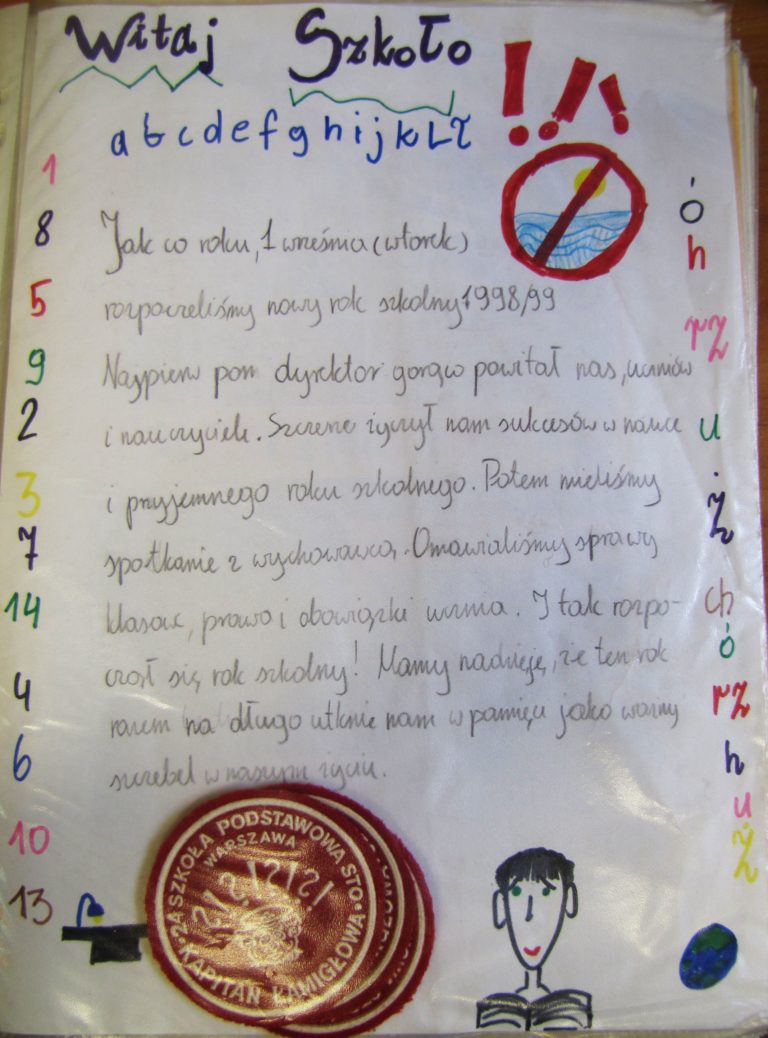 Witaj Szkoło !!!
a b c d e f g h i j k L Ł
1
8
5
9
2
3
7
14
4
6
10
13
Jak co roku, 1 września (wtorek)
rozpoczeliśmy nowy rok szkolny 1998/99
Najpierw pan dyrektor gorąco powitał nas, uczniów
i nauczycieli. Szczerze życzył nam sukcesów w nauce
i przyjemnego roku szkolnego. Potem mieliśmy
spotkanie z wychowawcą. Omawialiśmy sprawy
klasowe, prawa i obowiązki ucznia. I tak rozpo-
czął się rok szkolny! Mamy nadzieję, że ten rok
razem na długo utknie nam w pamięci jako ważny
szczebel w naszym życiu.
ó
h
rz
u
ż
ch
ó
rz
h
u
ż
24 SZKOŁA PODSTAWOWA STO
WARSZAWA
KAPITAN ŁAMIGŁOWA